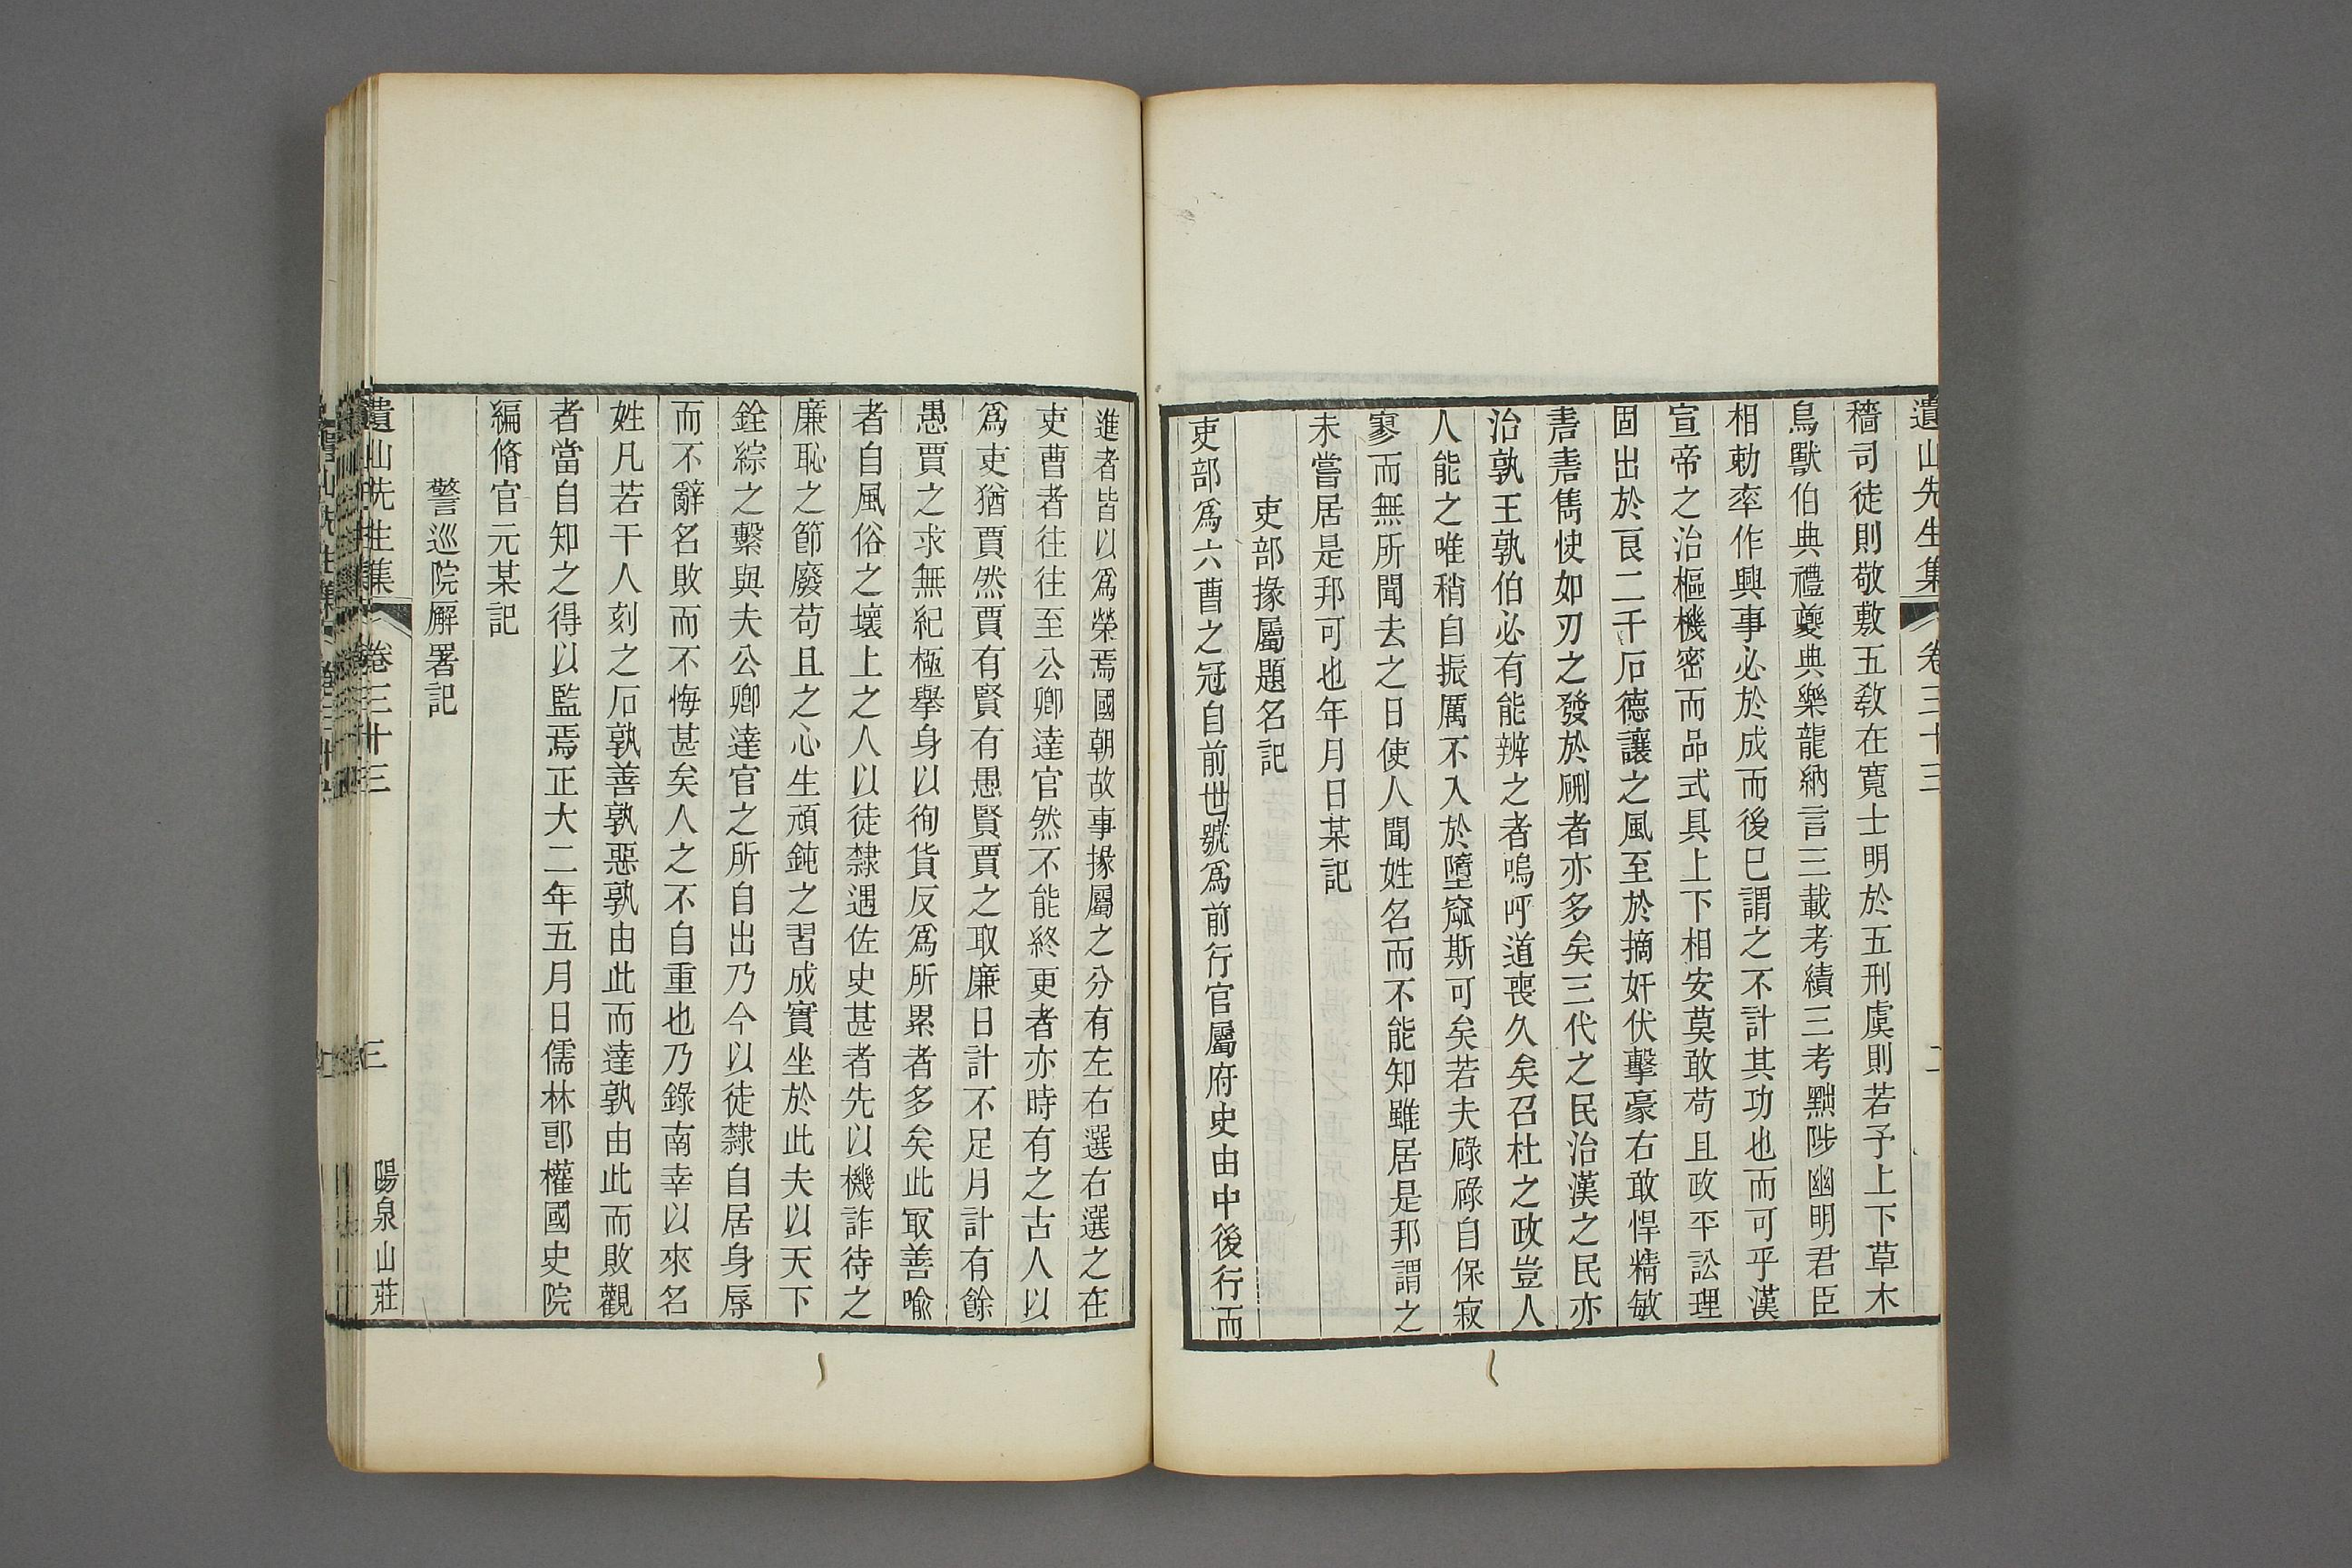 遺山先生集 卷三十三
穡司徒則敬敷五教在寬士明於五刑虞則若予上下草木
鳥獸伯典禮夔典樂龍納言三載考績三考黜陟幽明君臣
相勅率作興事必於成而後已謂之不計其功也而可乎漢
宣帝之治樞機密而品式具上下相安莫敢苟且政平訟理
固出於良二千石德讓之風至於摘奸伏擊豪右敢悍精敏
砉砉雋快如刃之發於硎者亦多矣三代之民治漢之民亦
治孰王孰伯必有能辨之者嗚呼道喪久矣召杜之政豈人
人能之唯稍自振厲不入於墮窳斯可矣若夫碌碌自保寂
寥而無所聞去之日使人聞姓名而不能知雖居是邦謂之
未嘗居是邦可也年月日某記
吏部掾屬題名記
吏部爲六曹之冠自前世號爲前行官屬府史由中後行而
進者皆以爲榮焉國朝故事掾屬之分有左右選右選之在
吏曹者往往至公卿達官然不能終更者亦時有之古人以
爲吏猶賈然賈有賢有愚賢賈之取廉日計不足月計有餘
愚賈之求無紀極舉身以徇貨反爲所累者多矣此冣善喻
者自風俗之壞上之人以徒隸遇佐史甚者先以機詐待之
廉恥之節廢苟且之心生頑鈍之習成實坐於此夫以天下
銓綜之繫與夫公卿達官之所自出乃今以徒隸自居身辱
而不辭名敗而不悔甚矣人之不自重也乃錄南幸以來名
姓凡若干人刻之石孰善孰惡孰由此而達孰由此而敗觀
者當自知之得以監焉正大二年五月日儒林郎權國史院
編脩官元某記
警巡院廨署記
遺山先生集 卷三十三 三 陽泉山莊